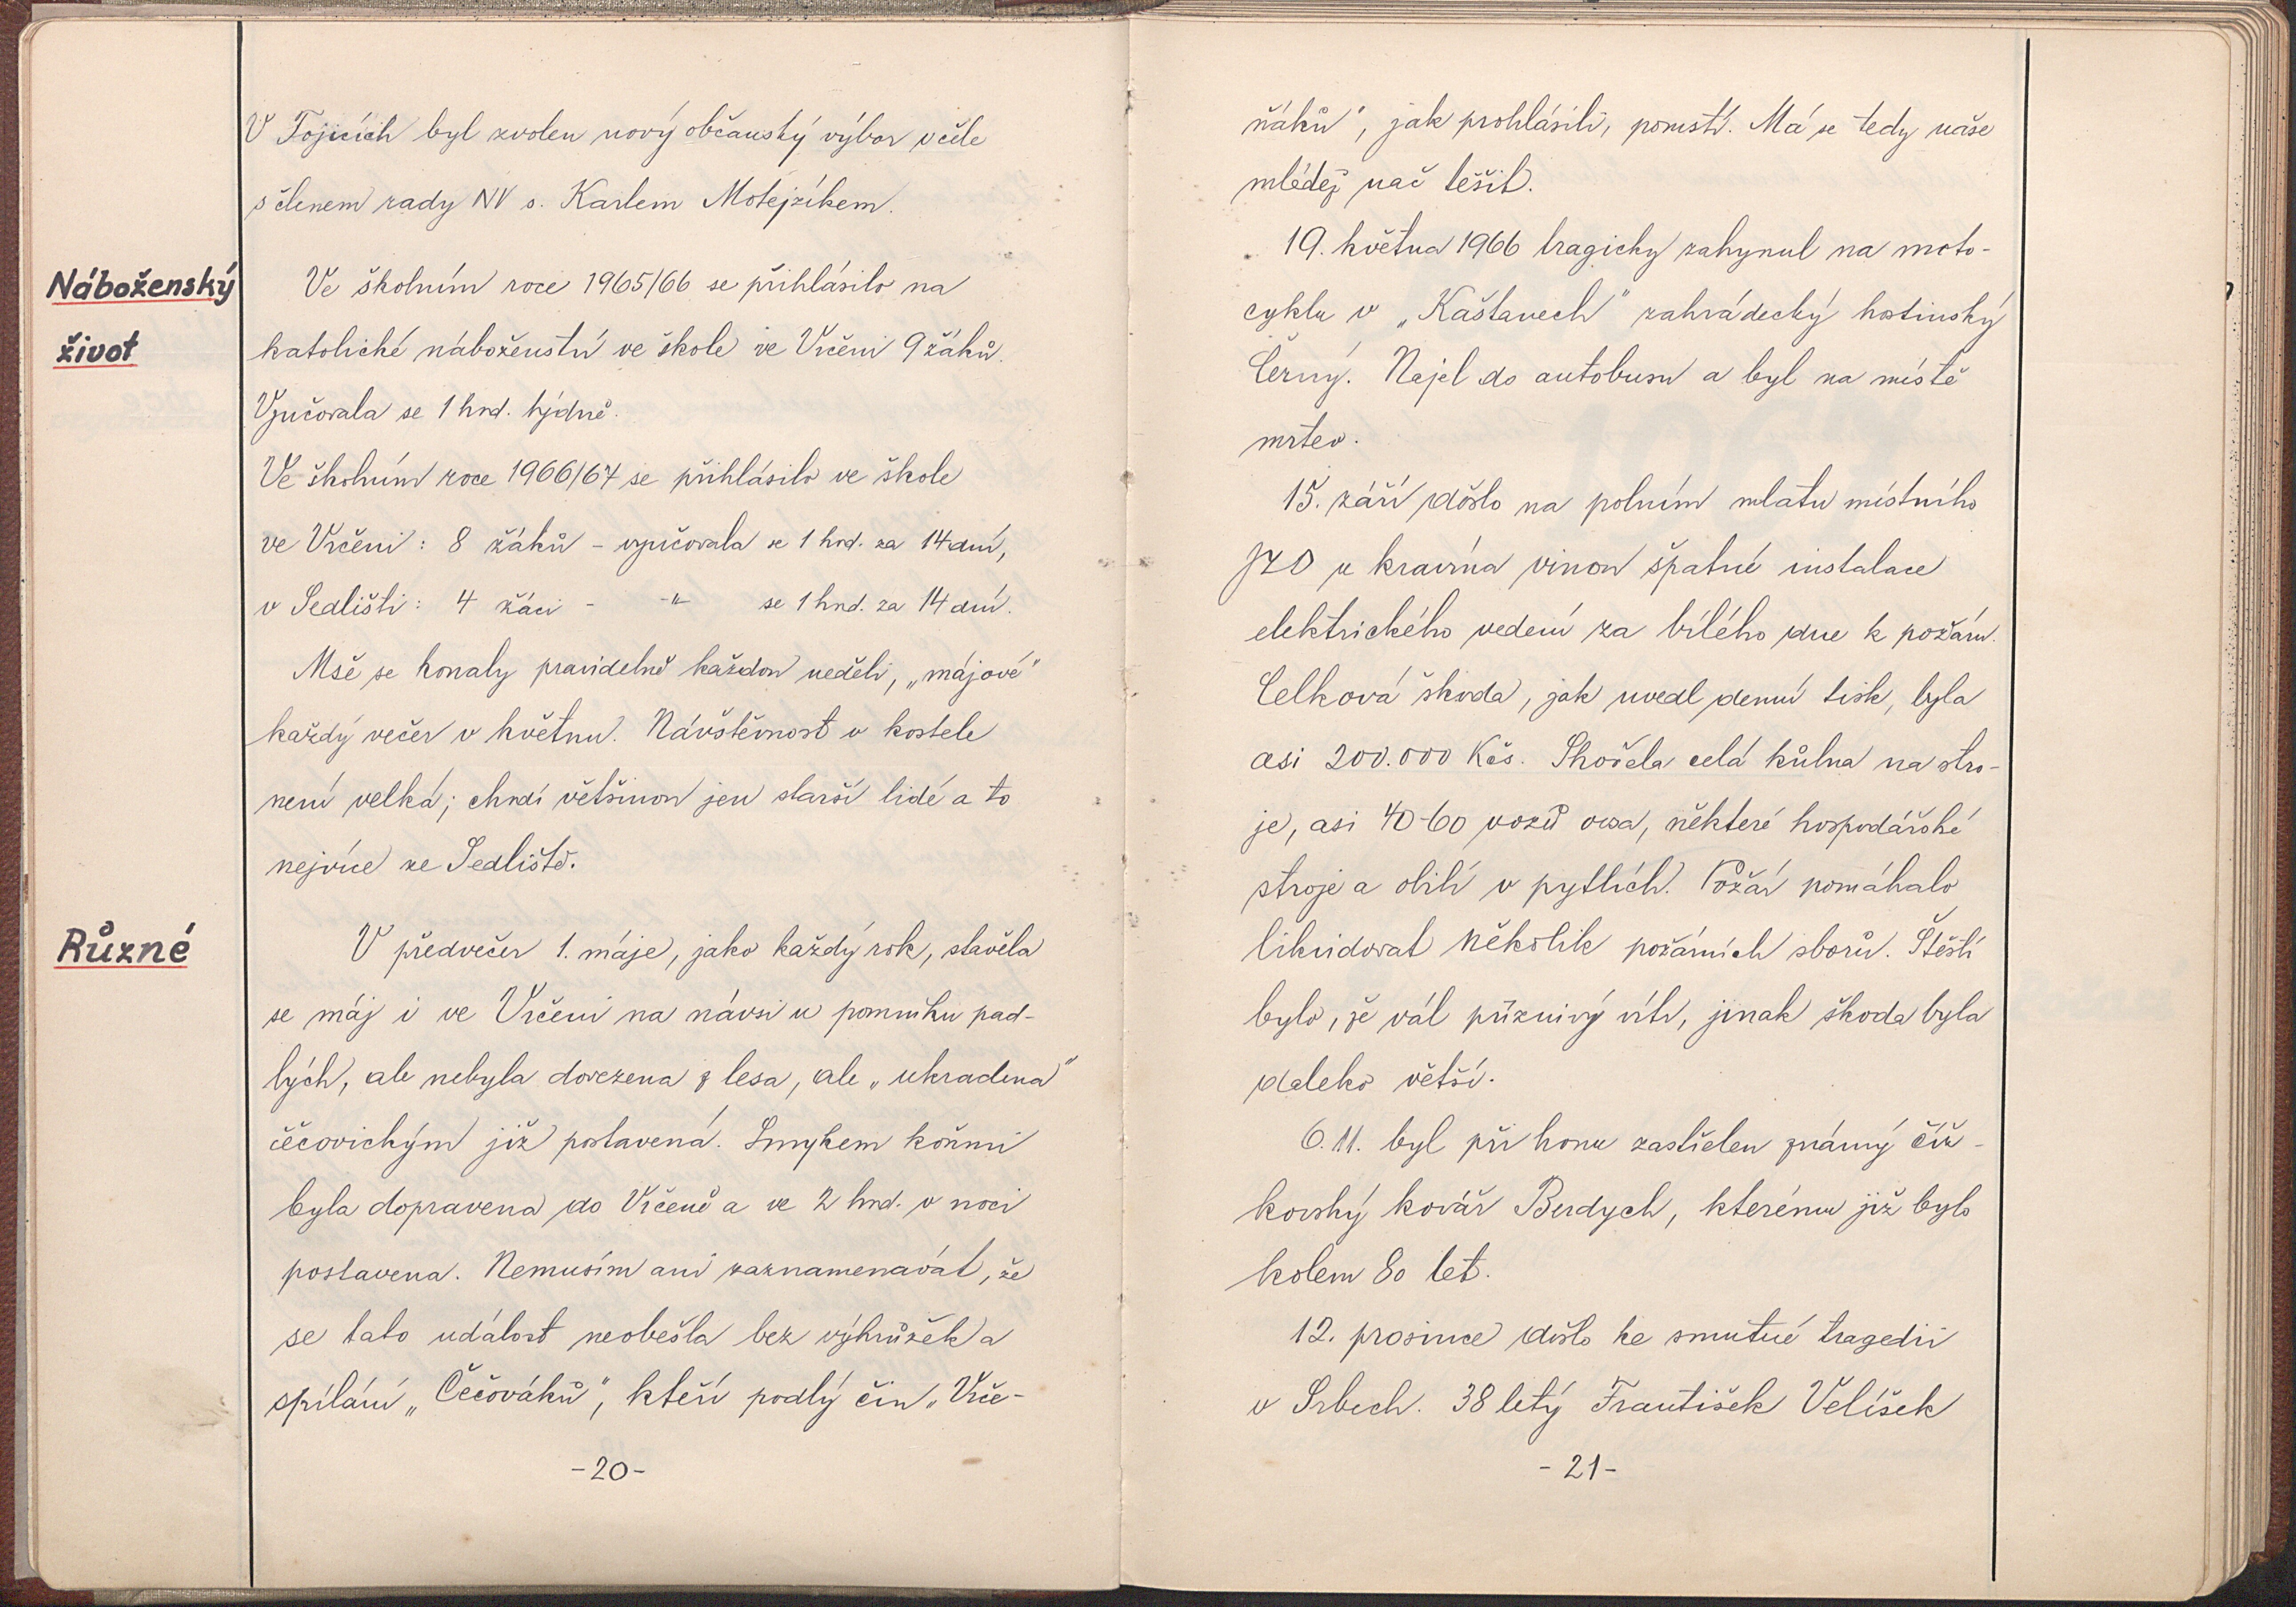 V Tojicích byl zvolen nový občanský výbor v čele
s členem rady NV s. Karlem Motejzíkem.
Náboženský
život
Ve školním roce 1965/66 se přihlásilo na
katolické náboženství ve škole ve Vrčeni 9 žáků.
Vyučovala se 1 hod. týdně.
Ve školním roce 1966/67 se přihlásilo ve škole
ve Vrčeni: 8 žáků - vyučovala se 1 hod. za 14 dní,
v Sedlišti: 4 žáci - -"- se 1 hod. za 14 dní.
Mše se konaly pravidelně každou neděli, „májové"
každý večer v květnu. Návštěvnost v kostele
není velká; chodí většinou jen starší lidé a to
nejvíce ze Sedliště.
Různé
V předvečer 1. máje, jako každý rok, stavěla
se máj i ve Vrčeni na návsi u pomníku pad-
lých, ale nebyla dovezena z lesa, ale „ukradena"
čečovickým již postavená. Smykem koňmi
byla dopravena do Vrčeně a ve 2 hod. v noci
postavena. Nemusím ani zaznamenávat, že
se tato událost neobešla bez výhrůžek a
spílání „Čečováků", kteří podlý čin „Vrče-
-20-
ňáků", jak prohlásili, pomstí. Má se tedy naše
mládež nač těšit.
19. května 1966 tragicky zahynul na moto-
cyklu v „Kaštanech" zahrádecký hostinský
Černý. Najel do autobusu a byl na místě
mrtev.
15. září došlo na polním mlatu místního
JZD u kravína vinou špatné instalace
elektrického vedení za bílého dne k požáru.
Celková škoda, jak uvedl denní tisk, byla
asi 200.000 Kčs. Shořela celá kůlna na stro-
je, asi 40-60 vozů ovsa, některé hospodářské
stroje a obilí v pytlích. Požár pomáhalo
likvidovat několik požárních sborů. Štěstí
bylo, že vál příznivý vítr, jinak škoda byla
daleko větší.
6. 11. byl při honu zastřelen známý číž-
kovský kovář Berdych, kterému již bylo
kolem 80 let.
12. prosince došlo ke smutné tragedii
v Srbech. 38 letý František Velíšek
-21-